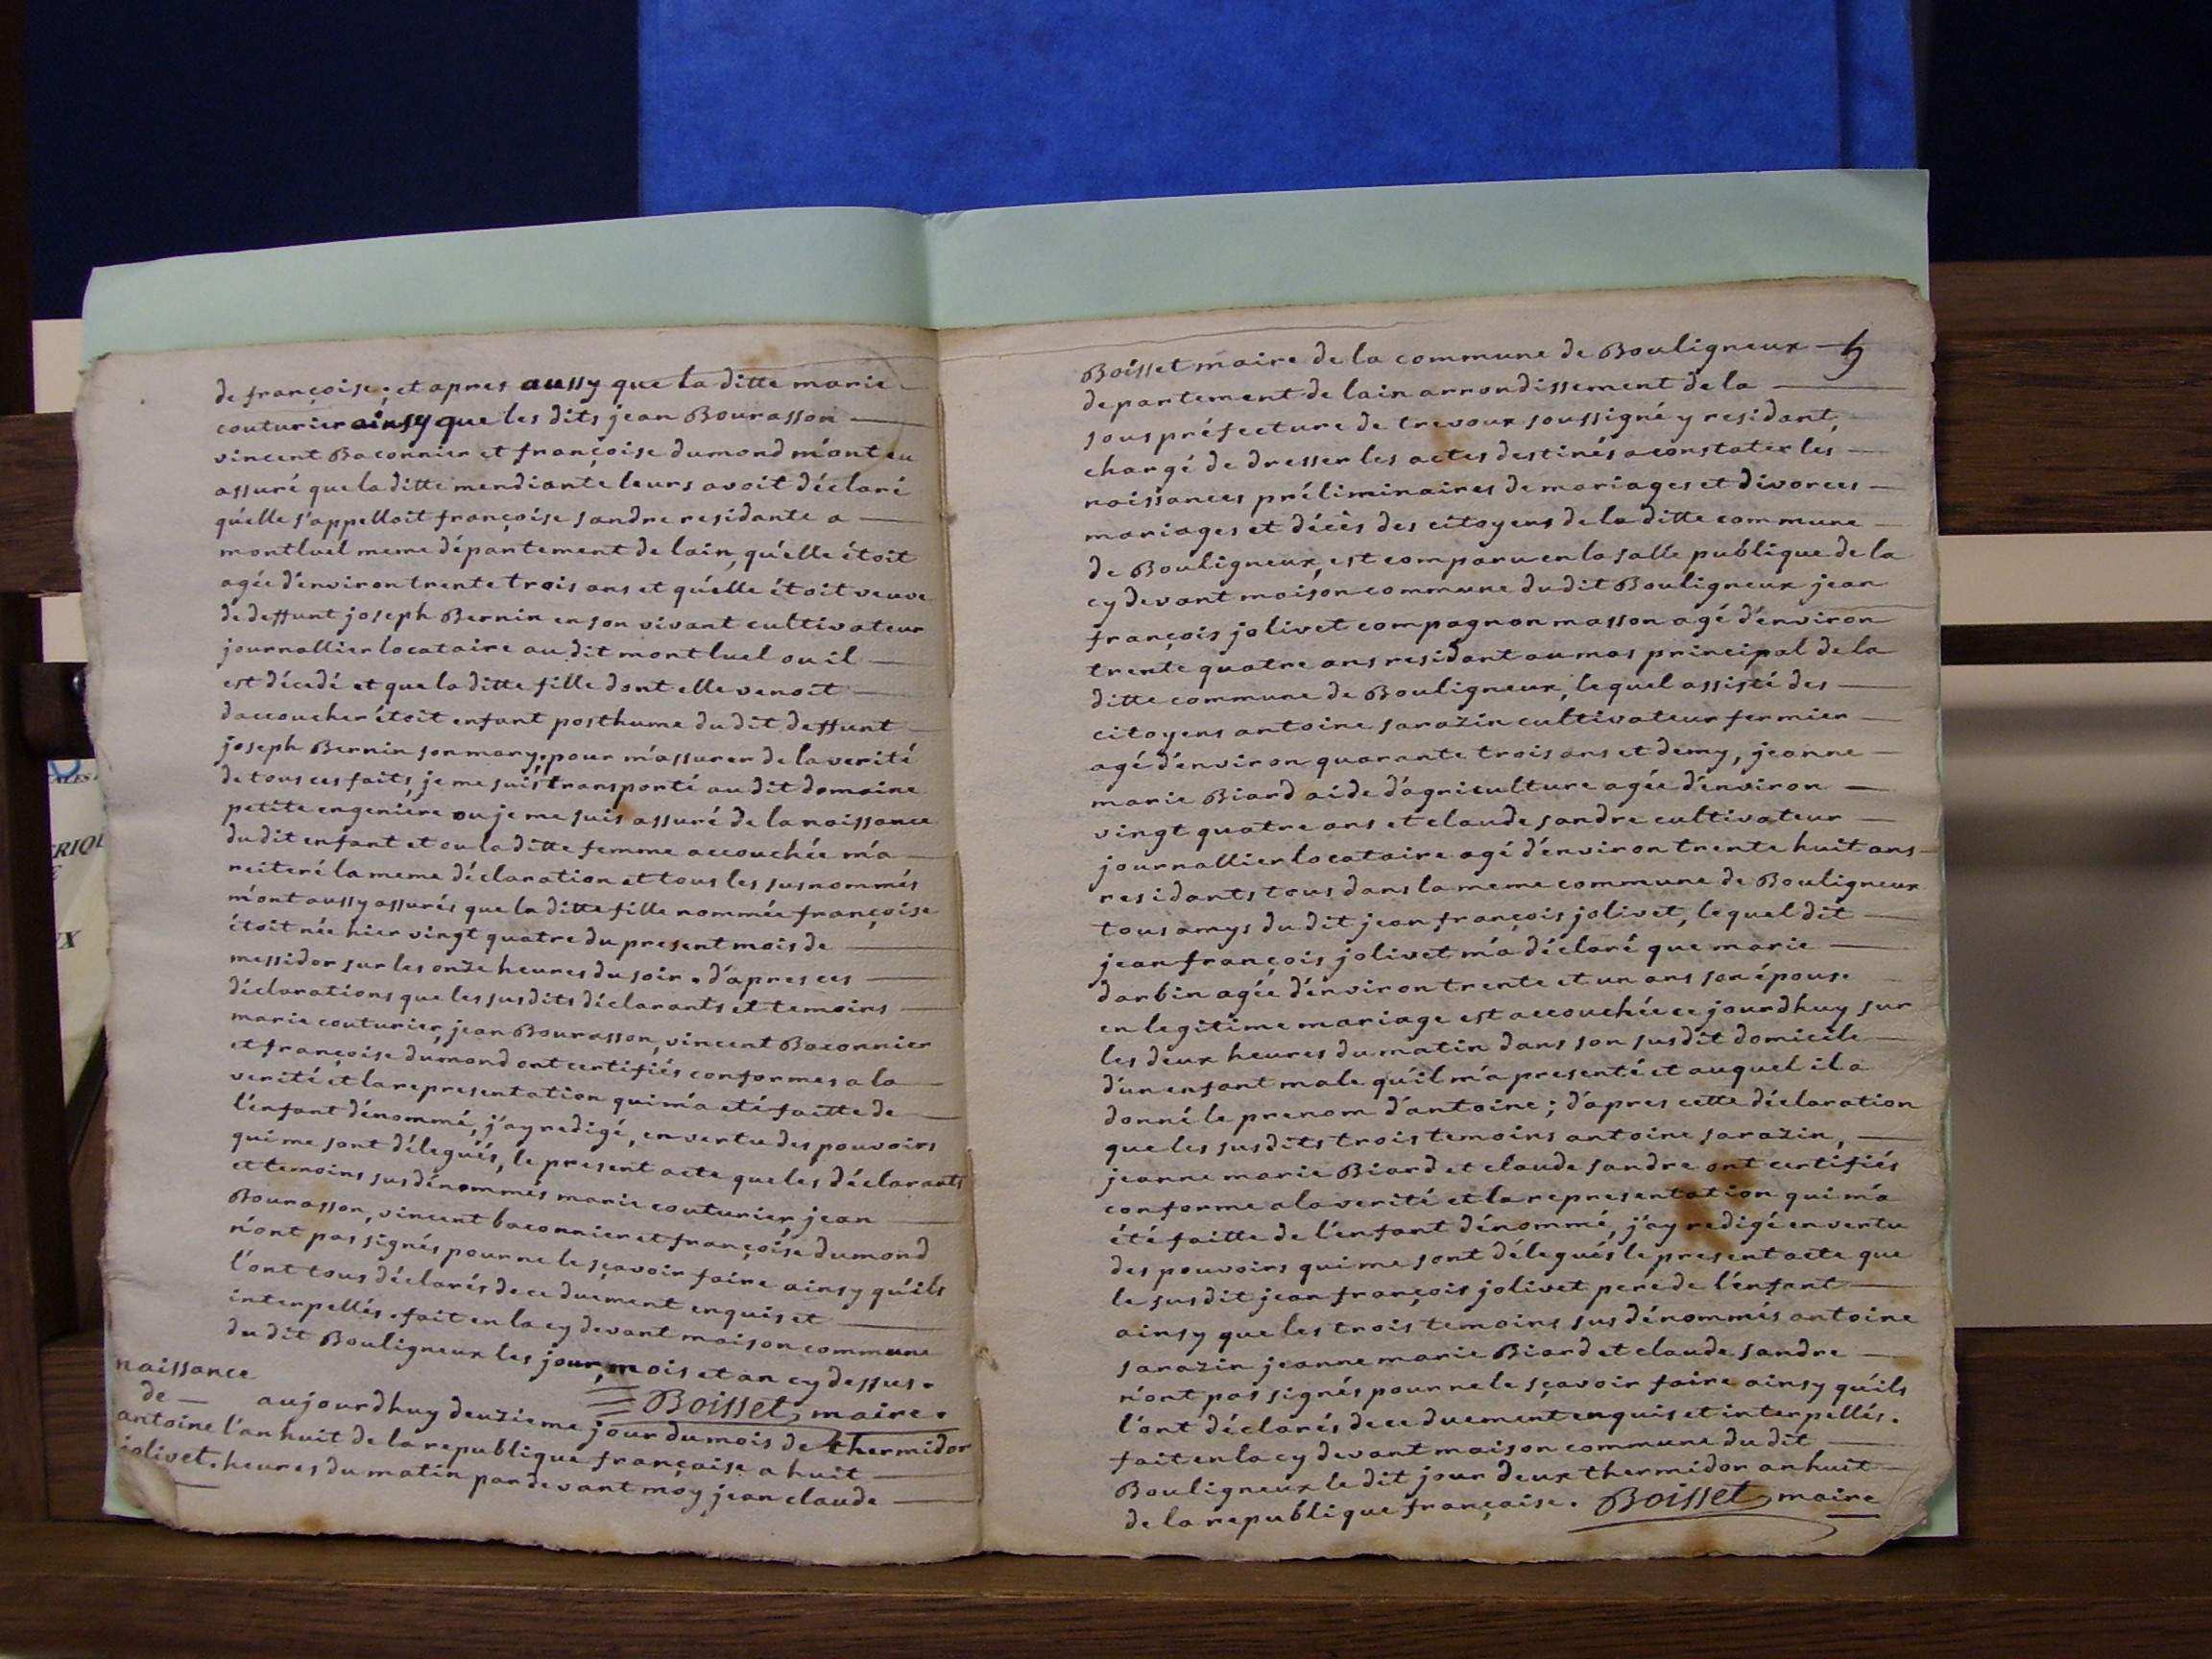 de françoise; et apres aussy que la ditte marie
couturier ainsy que les dits jean Bourasson
vincent Baconnier et françoise dumond m'ont eu
assuré que la ditte mendiante leurs avoit déclaré
qu'elle s'appelloit françoise sandre residante a
montluel meme département de lain, qu'elle étoit
agée d'environ trente trois ans et qu'elle étoit veuve
de deffunt joseph Bernin en son vivant cultivateur
journallier locataire au dit montluel ou il
est décedé et que la ditte fille dont elle venoit
daccoucher étoit enfant posthume du dit deffunt
joseph Bernin son mary; pour m'assurer de la verité
de tous ces faits, je me suis transporté au dit domaine
petite engeniere ou je me suis assuré de la naissance
du dit enfant et ou la ditte femme accouchée m'a
reiteré la meme déclaration et tous les susnommés
m'ont aussy assurés que la ditte fille nommée françoise
étoit née hier vingt quatre du present mois de
messidor sur les onze heures du soir. d'apres ces
déclarations que les susdits déclarants et temoins
marie couturier, jean Bourasson, vincent Baconnier
et françoise dumond ont certifiés conformes a la
verité et la representation qui m'a eté faitte de
l'enfant dénommé, j'ay redigé, en vertu des pouvoirs
qui me sont délegués, le present acte que les déclarants
et temoins sus dénommés marie couturier, jean
Bourasson, vincent baconnier et françoise dumond
n'ont pas signés pour ne le sçavoir faire ainsy qu'ils
l'ont tous déclarés de ce duement enquis et
interpellés. fait en la cy devant maison commune
du dit Bouligneux les jour, mois et an cy dessus.
Boisset, maire.
naissance
de
antoine
jolivet.
aujourdhuy deuzieme jour du mois de thermidor
l'an huit de la republique française a huit
heures du matin par devant moy jean claude
5
Boisset maire de la commune de Bouligneux
departement de lain arrondissement de la
sous préfecture de trevoux soussigné y residant,
chargé de dresser les actes destinés a constater les
naissances préliminaires de mariages et divorces
mariages et décès des citoyens de la ditte commune
de Bouligneux, est comparu en la salle publique de la
cy devant maison commune du dit Bouligneux jean
françois jolivet compagnon masson agé d'environ
trente quatre ans residant au mas principal de la
ditte commune de Bouligneux, lequel assisté des
citoyens antoine sarazin cultivateur fermier
agé d'environ quarante trois ans et demy, jeanne
marie Biard aide d'agriculture agée d'environ
vingt quatre ans et claude sandre cultivateur
journallier locataire agé d'environ trente huit ans
residants tous dans la meme commune de Bouligneux
tous amys du dit jean françois jolivet, lequel dit
jean françois jolivet m'a déclaré que marie
darbin agée d'environ trente et un ans son épouse
en legitime mariage est accouchée ce jourdhuy sur
les deux heures du matin dans son susdit domicile
d'un enfant male qu'il m'a presenté et auquel il a
donné le prenom d'antoine; d'apres cette déclaration
que les susdits trois temoins antoine sarazin,
jeanne marie Biard et claude sandre ont certifiés
conforme a la verité et la representation qui m'a
été faitte de l'enfant dénommé, j'ay redigé en vertu
des pouvoirs qui me sont délegués le present acte que
le susdit jean françois jolivet pere de l'enfant
ainsy que les trois temoins sus dénommés antoine
sarazin jeanne marie Biard et claude sandre
n'ont pas signés pour ne le sçavoir faire ainsy qu'ils
l'ont déclarés de ce duement enquis et interpellés.
fait en la cy devant maison commune du dit
Bouligneux le dit jour deux thermidor an huit
de la republique française. Boisset, maire